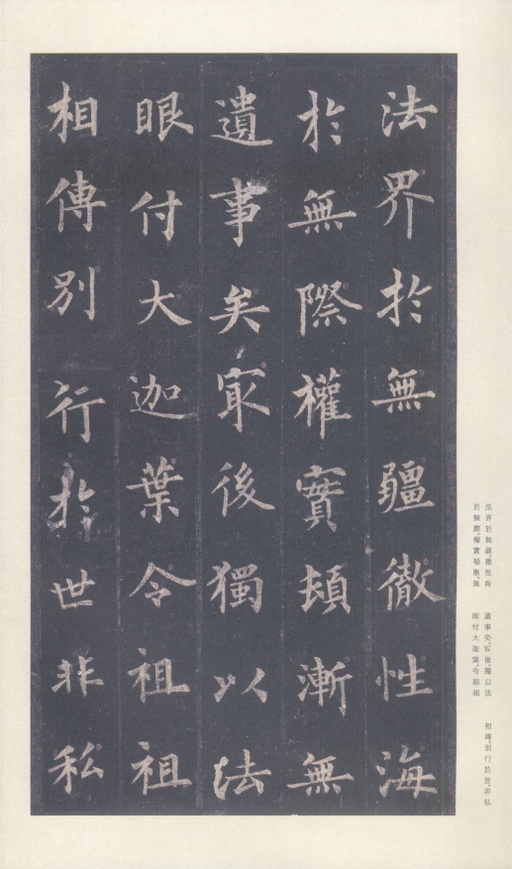 法界於無疆徹性海
於無際權實頓漸無
遺事矣冣後獨以法
眼付大迦葉令祖祖
相傳別行於世非私
法界於無疆、徹性海
於無際、權實頓漸、無
遺事矣、冣後、獨以法
眼付大迦葉、令祖祖
相傳、別行於世、非私